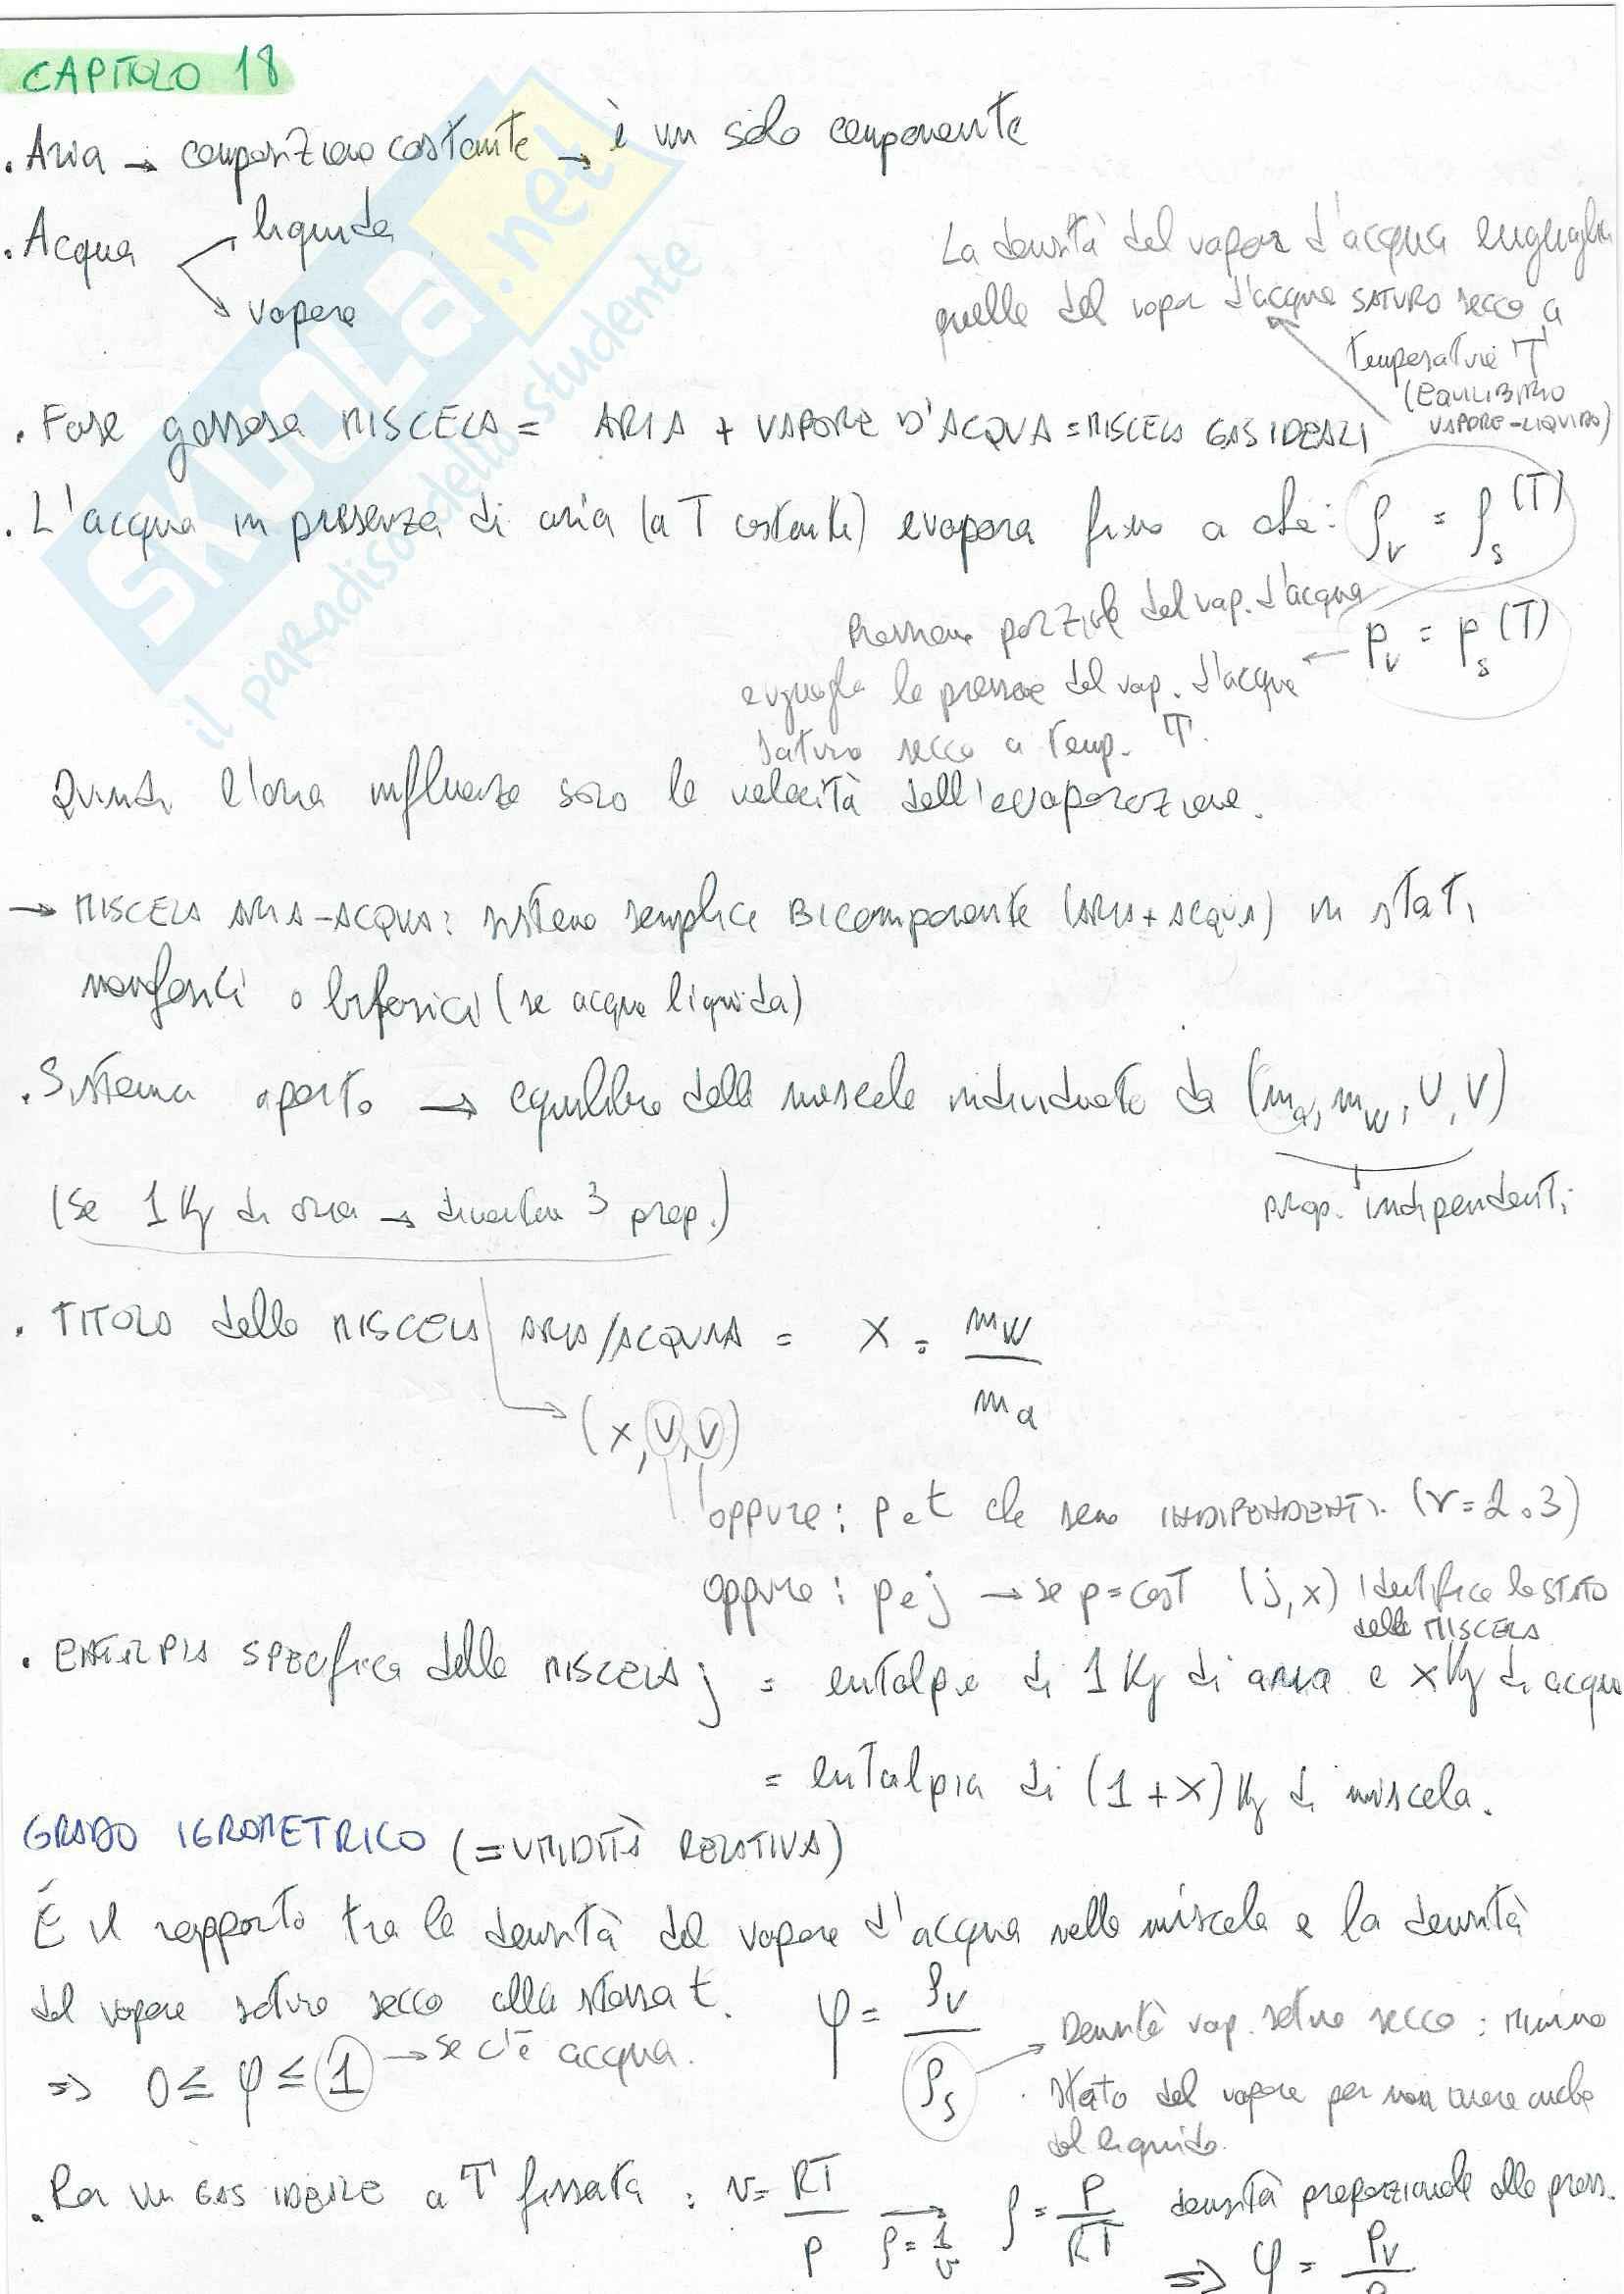 CAPITOLO 18
. Aria → composizione costante → è un solo componente
. Acqua liquida
vapore
La densità del vapor d'acqua eguaglia
quella del vapor d'acqua SATURO secco a
temperatura T
(EQUILIBRIO
VAPORE-LIQUIDO)
. Fase gassosa MISCELA = ARIA + VAPORE D'ACQUA = MISCELA GAS IDEALI
. L'acqua in presenza di aria (a T costante) evapora fino a che: ρv = ρs(T)
Pressione parziale del vap. d'acqua
eguaglia la pressione del vap. d'acqua ← pv = ps(T)
saturo secco a temp. T.
Quindi l'aria influenza solo la velocità dell'evaporazione.
→ MISCELA ARIA-ACQUA: sistema semplice BIcomponente (ARIA + ACQUA) in stati
monofasici o bifasici (se acqua liquida)
. Sistema aperto → equilibrio della miscela individuato da (ma, mw, U, V)
prop. indipendenti
(Se 1 Kg di aria → diventan 3 prop.)
. TITOLO della MISCELA ARIA/ACQUA = x = mw/ma
(x, U, V)
oppure: p e t che sono INDIPENDENTI. (r = 2 o 3)
oppure: p e j → se p = cost (j, x) identifica lo STATO
della MISCELA
. ENTALPIA SPECIFICA della MISCELA j = entalpia di 1 Kg di aria e x Kg di acqua
= entalpia di (1 + x) Kg di miscela.
GRADO IGROMETRICO (= UMIDITÀ RELATIVA)
È il rapporto tra la densità del vapore d'acqua nella miscela e la densità
del vapore saturo secco alla stessa t. φ = ρv/ρs → Densità vap. saturo secco: minimo
stato del vapore per non avere anche
del liquido.
=> 0 ≤ φ ≤ 1 → se c'è acqua.
. Per un GAS IDEALE a T fissata: v = RT/p → ρ = 1/v ρ = p/RT densità proporzionale alla press.
=> φ = pv